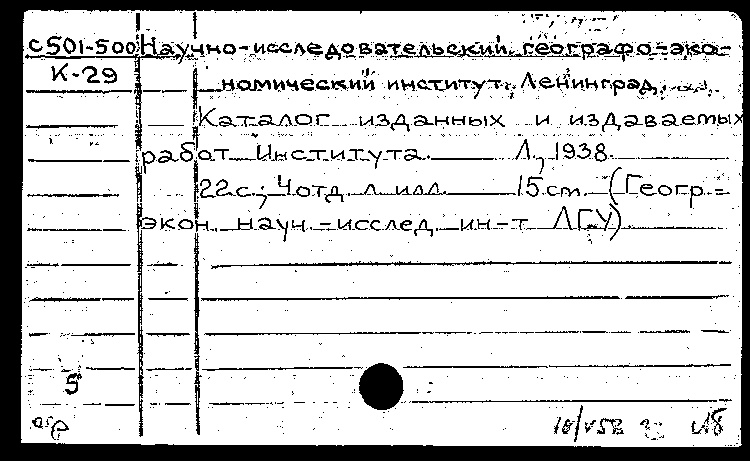 С501-500 Научно-исследовательский географо-эко-
К-29 номический институт, Ленинград.
Каталог изданных и издаваемых
работ Института. Л., 1938.
22 с.; 4 отд. л. илл. 15 см. (Геогр.=
экон. науч.-исслед. ин-т ЛГУ)
5